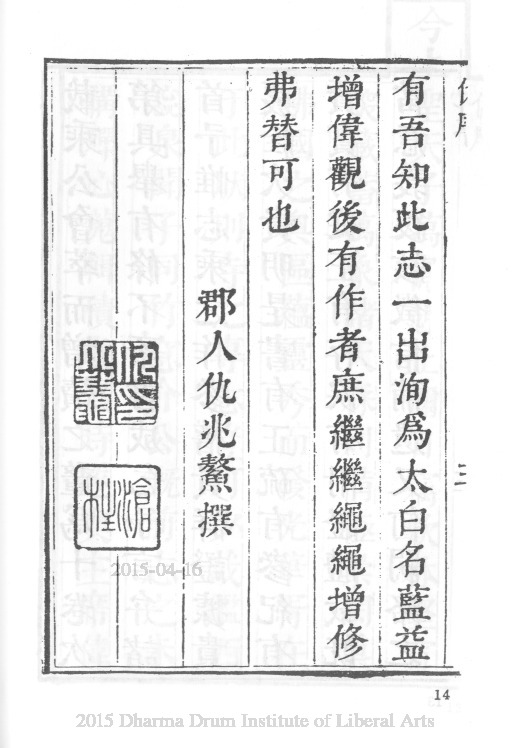 有吾知此志一出洵爲太白名藍益
增偉觀後有作者庶繼繼繩繩增修
弗替可也
郡人仇兆鰲撰
滄柱
2015-04-16
14
2015 Dharma Drum Institute of Liberal Arts